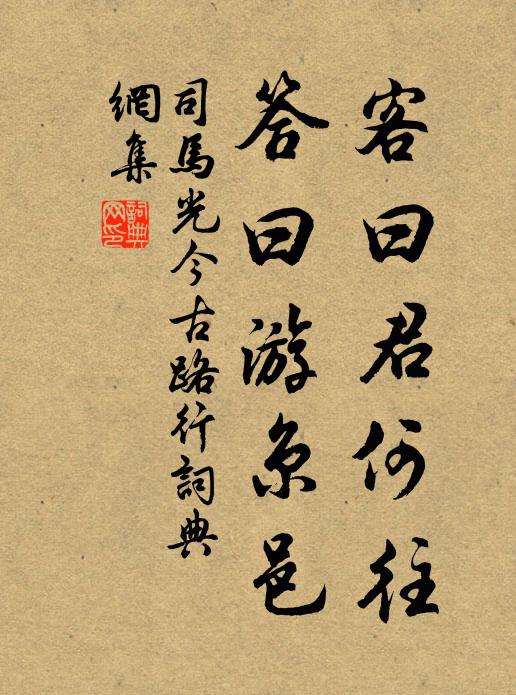 客曰君何往
答曰游京邑
司馬光今古路行詞典
網集
詞典
网印